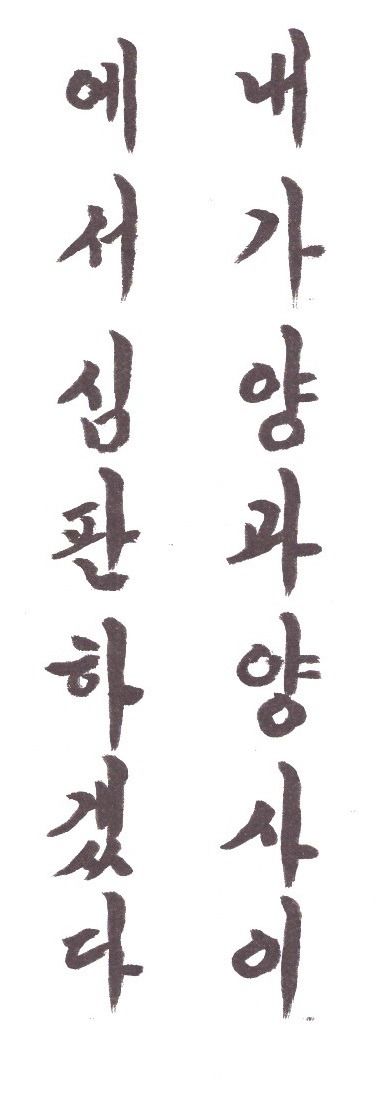 내가양과양사이
에서심판하겠다